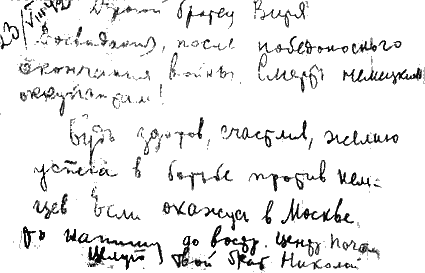 23/VIII 42 Дорогой братец Витя
Досвидания, после победоносного
окончания войны. Смерть немецким
оккупантам!
Будь здоров, счастлив, желаю
успеха в борьбе против нем-
цев Если окажусь в Москве,
то напишу до
Твой брат Николай